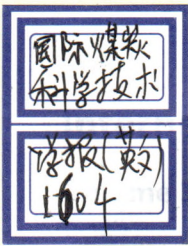 国际煤炭
科学技术
学报(英文)
1604